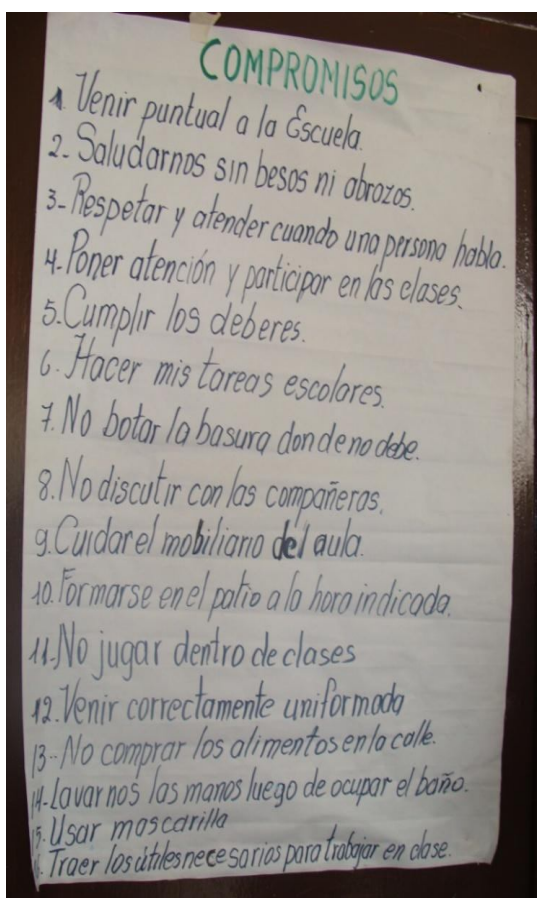 COMPROMISOS
1. Venir puntual a la Escuela.
2.- Saludarnos sin besos ni abrozos.
3- Respetar y atender cuando una persona habla.
4. Poner atención y participar en las clases.
5. Cumplir los deberes.
6. Hacer mis tareas escolares.
7. No botar la basura donde no debe.
8. No discutir con las compañeras.
9. Cuidar el mobiliario del aula.
10. Formarse en el patio a la hora indicada.
11.-No jugar dentro de clases
12. Venir correctamente uniformada
13.-No comprar los alimentos en la calle.
14-Lavarnos las manos luego de ocupar el baño.
15. Usar mascarilla
. Traer los útiles necesarios para trabajar en clase.